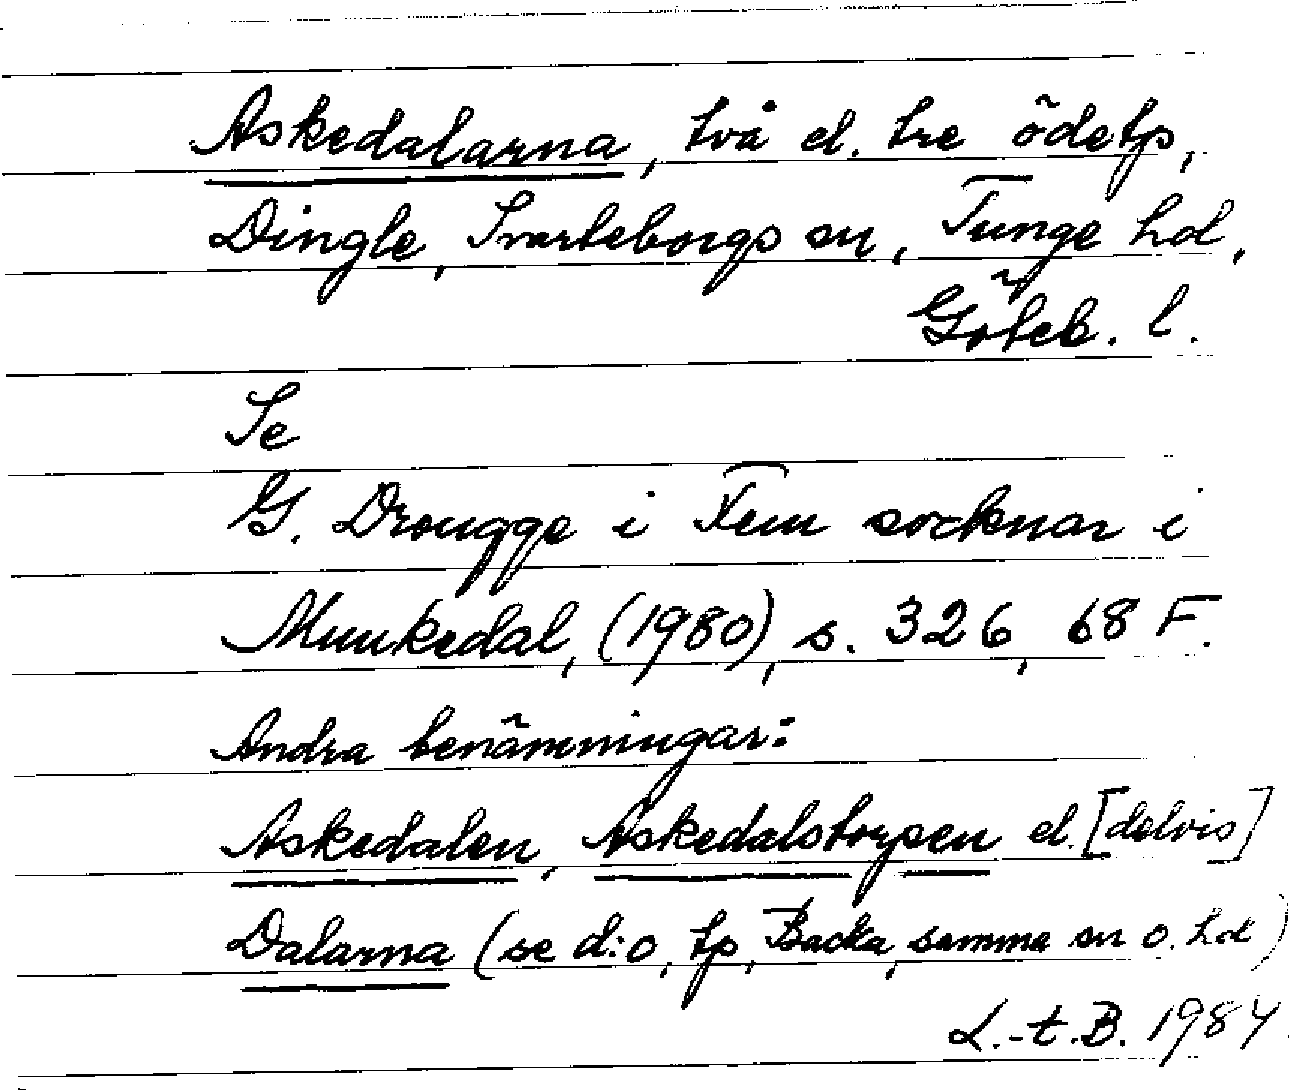 Askedalarna, två el. tre ödetp,
Dingle, Svarteborgs sn, Tunge hd,
Göteb. l.
Se
G. Drougge i Fem socknar i
Munkedal, (1980), s. 326, 68 F.
Andra benämningar:
Askedalen, Askedalstorpen el. [delvis]
Dalarna (se d:o, tp, Backa, samma sn o. hd)
L.-t.B. 1984.